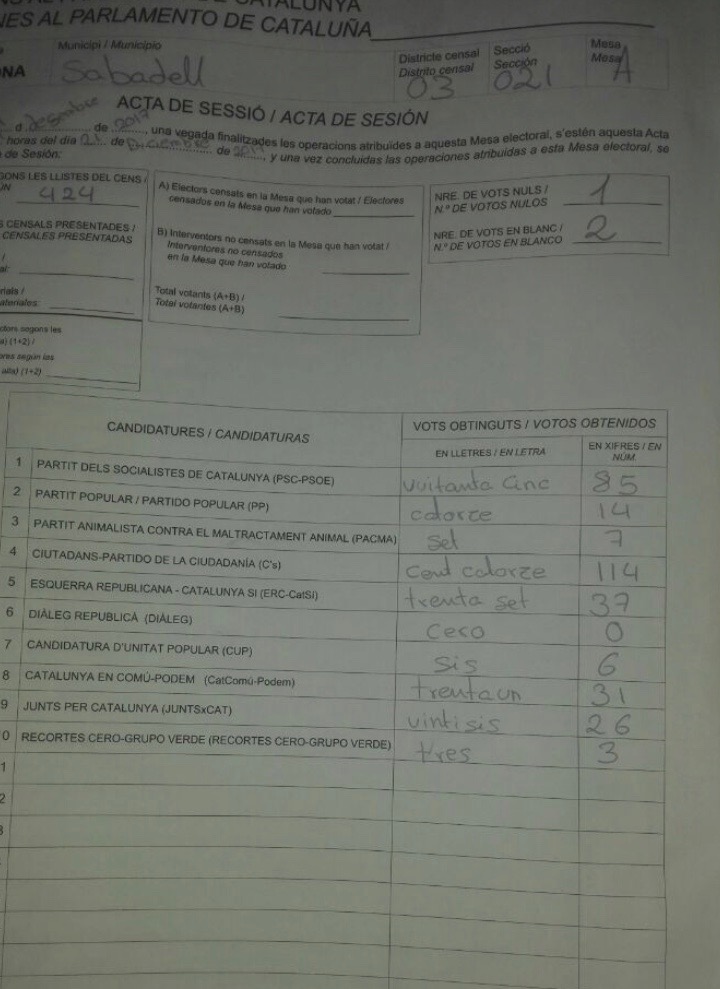 CATALUNYA
NES AL PARLAMENTO DE CATALUÑA
Municipi / Municipio
NA Sabadell
Districte censal
Distrito censal
03
Secció
Sección
021
Mesa
Mesa
A
ACTA DE SESSIÓ / ACTA DE SESIÓN
d desembre de 2017, una vegada finalitzades les operacions atribuïdes a aquesta Mesa electoral, s'estén aquesta Acta
horas del día 21 de Diciembre de 2017, y una vez concluidas las operaciones atribuidas a esta Mesa electoral, se
de Sesión:
GONS LES LLISTES DEL CENS /
424
S CENSALS PRESENTADES /
CENSALES PRESENTADAS
rials /
ateriales:
ctors segons les
a) (1+2) /
ores según las
alla) (1+2)
A) Electors censats en la Mesa que han votat / Electores
censados en la Mesa que han votado
B) Interventors no censats en la Mesa que han votat /
Interventores no censados
en la Mesa que han votado
Total votants (A+B) /
Total votantes (A+B)
NRE. DE VOTS NULS /
N.º DE VOTOS NULOS
1
NRE. DE VOTS EN BLANC /
N.º DE VOTOS EN BLANCO
2
CANDIDATURES / CANDIDATURAS
VOTS OBTINGUTS / VOTOS OBTENIDOS
EN LLETRES / EN LETRA
EN XIFRES / EN
NÚM.
1 PARTIT DELS SOCIALISTES DE CATALUNYA (PSC-PSOE) vuitanta cinc 85
2 PARTIT POPULAR / PARTIDO POPULAR (PP) catorze 14
3 PARTIT ANIMALISTA CONTRA EL MALTRACTAMENT ANIMAL (PACMA) set 7
4 CIUTADANS-PARTIDO DE LA CIUDADANÍA (C's) cent catorze 114
5 ESQUERRA REPUBLICANA - CATALUNYA SI (ERC-CatSI) trenta set 37
6 DIÀLEG REPUBLICÀ (DIÀLEG) cero 0
7 CANDIDATURA D'UNITAT POPULAR (CUP) sis 6
8 CATALUNYA EN COMÚ-PODEM (CatComú-Podem) trentaun 31
9 JUNTS PER CATALUNYA (JUNTSxCAT) vintisis 26
0 RECORTES CERO-GRUPO VERDE (RECORTES CERO-GRUPO VERDE) tres 3
1
2
3